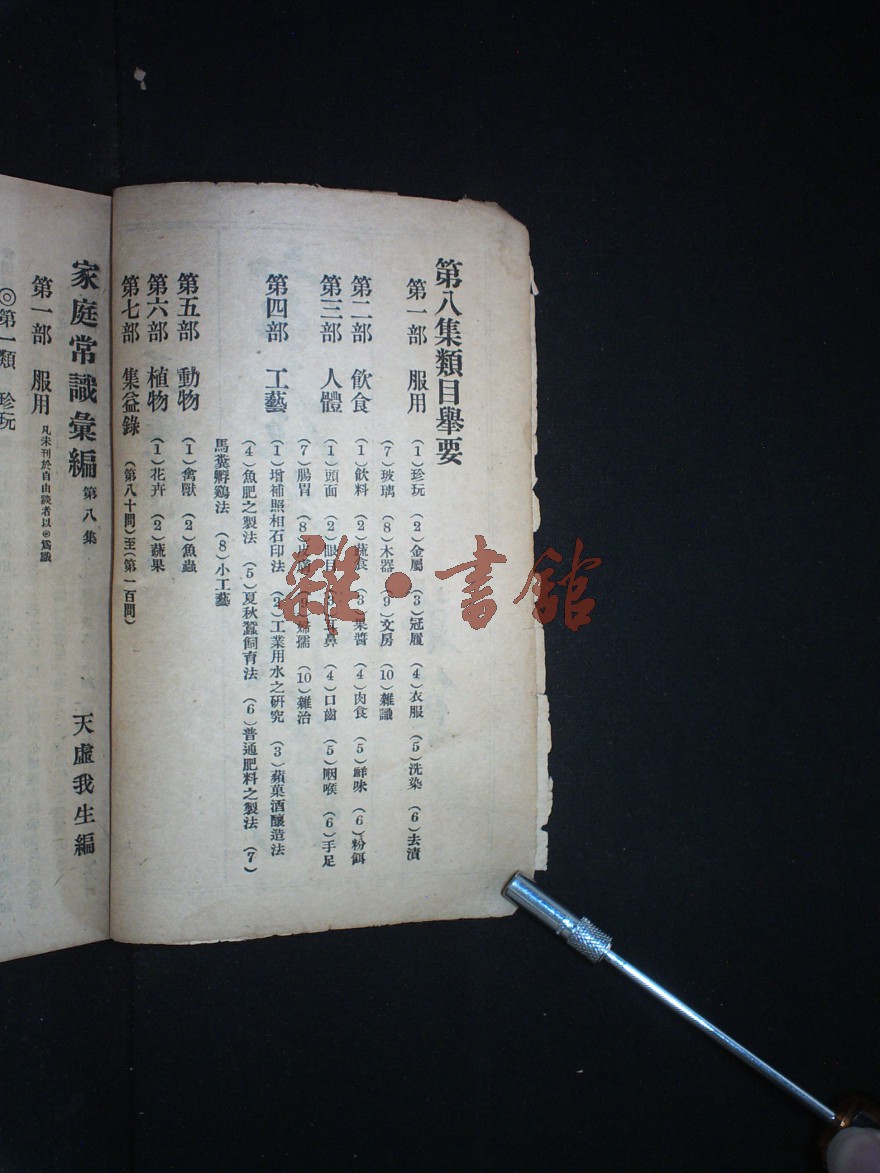 第八集類目舉要
第一部 服用 (1)珍玩 (2)金屬 (3)冠履 (4)衣服 (5)洗染 (6)去漬
(7)玻璃 (8)木器 (9)文房 (10)雜識
第二部 飲食 (1)飲料 (2)蔬食 (3)果醬 (4)肉食 (5)鮮味 (6)粉餌
第三部 人體 (1)頭面 (2)眼目 鼻 (4)口齒 (5)咽喉 (6)手足
(7)腸胃 (8)皮 婦孺 (10)雜治
第四部 工藝 (1)增補照相石印法 (2)工業用水之研究 (3)蘋菓酒釀造法
(4)魚肥之製法 (5)夏秋蠶飼育法 (6)普通肥料之製法 (7)
馬糞孵鷄法 (8)小工藝
第五部 動物 (1)禽獸 (2)魚蟲
第六部 植物 (1)花卉 (2)蔬果
第七部 集益錄 (第八十問)至(第一百問)
家庭常識彙編 第八集 天虛我生編
第一部 服用 凡未刊於自由談者以⊙爲識
◎第一類 珍玩
雜·書館